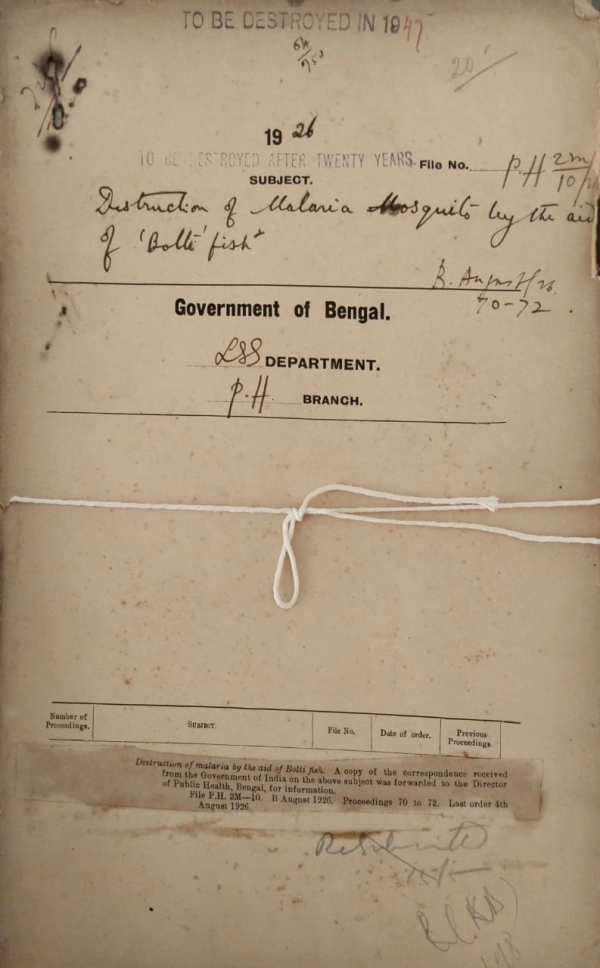 TO BE DESTROYED IN 1947
20
1926
TO BE DESTROYED AFTER TWENTY YEARS. File No. P.H 2M/10
SUBJECT.
Destruction of Malaria Mosquito by the aid
of 'Bolti' fish
B. August/26.
70-72.
Government of Bengal.
LSG DEPARTMENT.
P.H. BRANCH.
Number of Proceedings. SUBJECT. File No. Date of order. Previous Proceedings.
Destruction of malaria by the aid of Bolti fish. A copy of the correspondence received
from the Government of India on the above subject was forwarded to the Director
of Public Health, Bengal, for information.
File P.H. 2M—10. B August 1926. Proceedings 70 to 72. Last order 4th
August 1926.